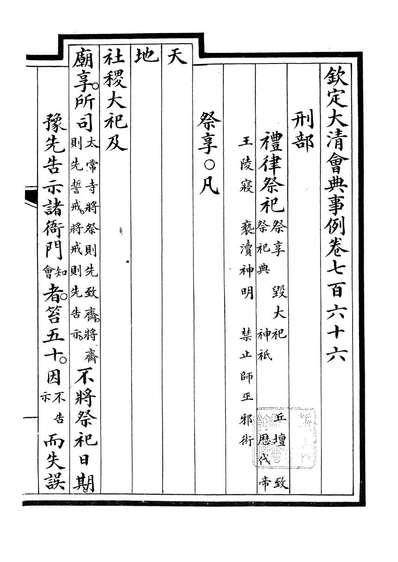 欽定大清會典事例卷七百六十六
刑部
禮律祭祀祭享 毀大祀丘壇 致
祭祀典神祇 歷代帝
王陵寢 褻瀆神明 禁止師巫邪術
祭享○凡
天
地
社稷大祀及
廟享所司太常寺將祭則先致齋將齋
則先誓戒將戒則先告示不將祭祀日期
豫先告示諸衙門知會者笞五十因不告示而失誤